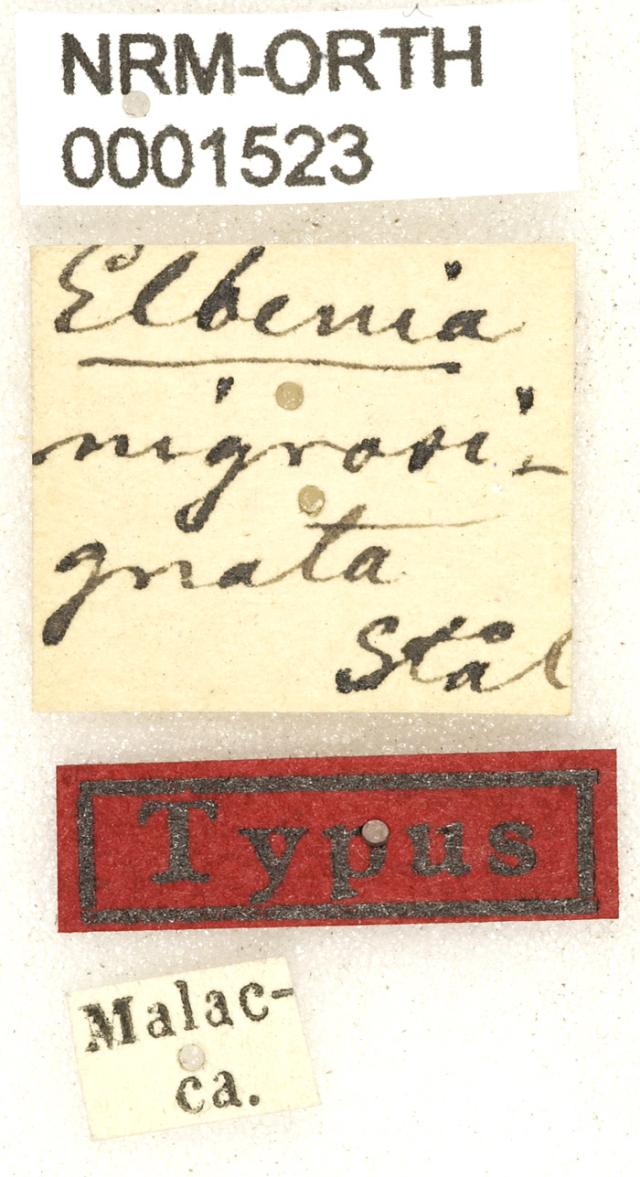 NRM-ORTH
0001523
Elbenia
nigrosi-
gnata
Stål
Typus
Malac-
ca.